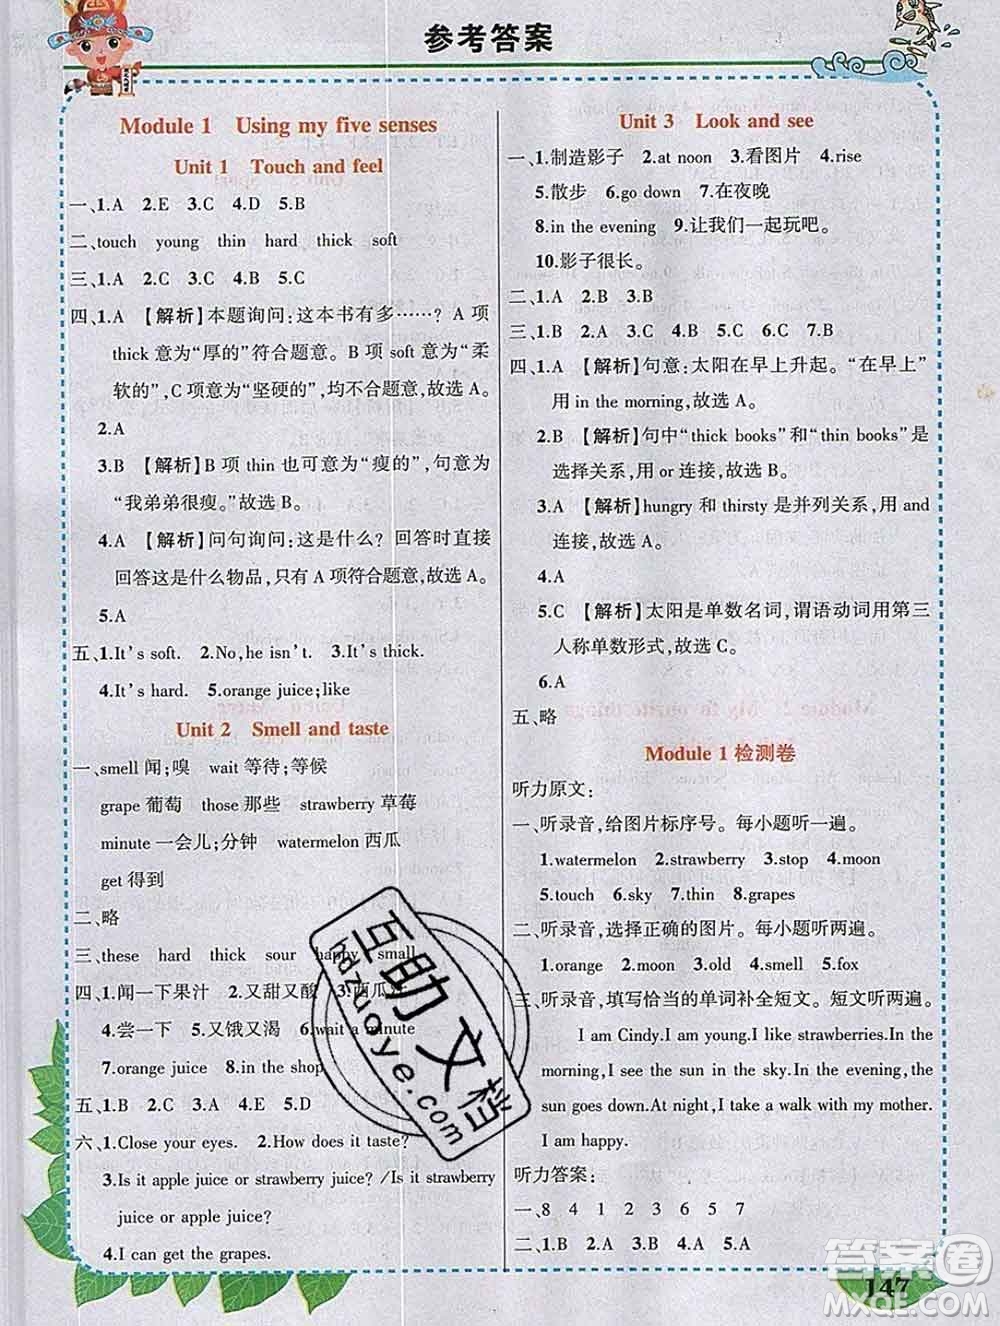 参考答案
Module 1 Using my five senses
Unit 1 Touch and feel
一、1.A 2.E 3.C 4.D 5.B
二、touch young thin hard thick soft
三、1.A 2.B 3.C 4.B 5.C
四、1.A 【解析】本题询问:这本书有多……? A 项
thick意为“厚的”符合题意。B 项 soft意为“柔
软的”,C 项意为“坚硬的”,均不合题意,故选 A。
2.A
3.B 【解析】B 项 thin 也可意为“瘦的”,句意为
“我弟弟很瘦。”故选 B。
4.A 【解析】问句询问:这是什么? 回答时直接
回答这是什么物品,只有 A 项符合题意,故选 A。
5.A
五、1.It's soft. 2.No,he isn't. 3.It's thick.
4.It's hard. 5.orange juice;like
Unit 2 Smell and taste
一、smell 闻;嗅 wait 等待;等候
grape 葡萄 those 那些 strawberry 草莓
minute 一会儿;分钟 watermelon 西瓜
get 得到
二、略
三、these hard thick sour happy small
四、1.闻一下果汁 2.又甜又酸 3.西瓜
4.尝一下 5.又饿又渴 6.wait a minute
7.orange juice 8.in the shop
五、1.B 2.C 3.A 4.E 5.D
六、1.Close your eyes. 2.How does it taste?
3.Is it apple juice or strawberry juice? /Is it strawberry
juice or apple juice?
4.I can get the grapes.
Unit 3 Look and see
一、1.制造影子 2.at noon 3.看图片 4.rise
5.散步 6.go down 7.在夜晚
8.in the evening 9.让我们一起玩吧。
10.影子很长。
二、1.A 2.B 3.B
三、1.B 2.A 3.C 4.B 5.C 6.C 7.B
四、1.A 【解析】句意:太阳在早上升起。“在早上”
用 in the morning,故选 A。
2.B 【解析】句中“thick books”和“thin books”是
选择关系,用 or 连接,故选 B。
3.A 【解析】hungry 和 thirsty 是并列关系,用 and
连接,故选 A。
4.A
5.C 【解析】太阳是单数名词,谓语动词用第三
人称单数形式,故选 C。
6.A
五、略
Module 1 检测卷
听力原文:
一、听录音,给图片标序号。每小题听一遍。
1.watermelon 2.strawberry 3.stop 4.moon
5.touch 6.sky 7.thin 8.grapes
二、听录音,选择正确的图片。每小题听两遍。
1.orange 2.moon 3.old 4.smell 5.fox
三、听录音,填写恰当的单词补全短文。短文听两遍。
I am Cindy.I am young.I like strawberries.In the
morning,I see the sun in the sky.In the evening,the
sun goes down.At night,I take a walk with my mother.
I am happy.
听力答案:
一、8 4 1 2 3 5 6 7
二、1.B 2.A 3.B 4.A 5.A
147
互助文档
hdzuoye.com
答案圈
MXQE.COM